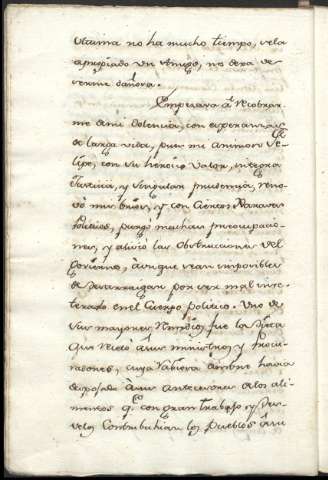 ultima no ha mucho tiempo, se la
apropiado un Amigo, no dexa de
serme dañosa.
Empezava a recobrar
me de mi Dolencia, con esperanzas
de larga vida, pues mi animoso Fe-
lipe, con su heroico valor, integra
Justicia, y singular prudencia, reno-
vó mis brios, y con ciertos
Politicos, purgó muchas preocupacio-
nes, y alivió las Obstrucciones del
Govierno, aunque sean imposibles
de desarraigar por ser mal inte-
rado en el Cuerpo politico. Uno de
sus mayores Remedios, fue la Dieta
que recetó a sus ministros, y Procu-
radores, cuya hambre havia
despojado a sus antecesores a los ali-
mentos q. con gran trabajo, y des-
velos Contribuhian los Pueblos a su